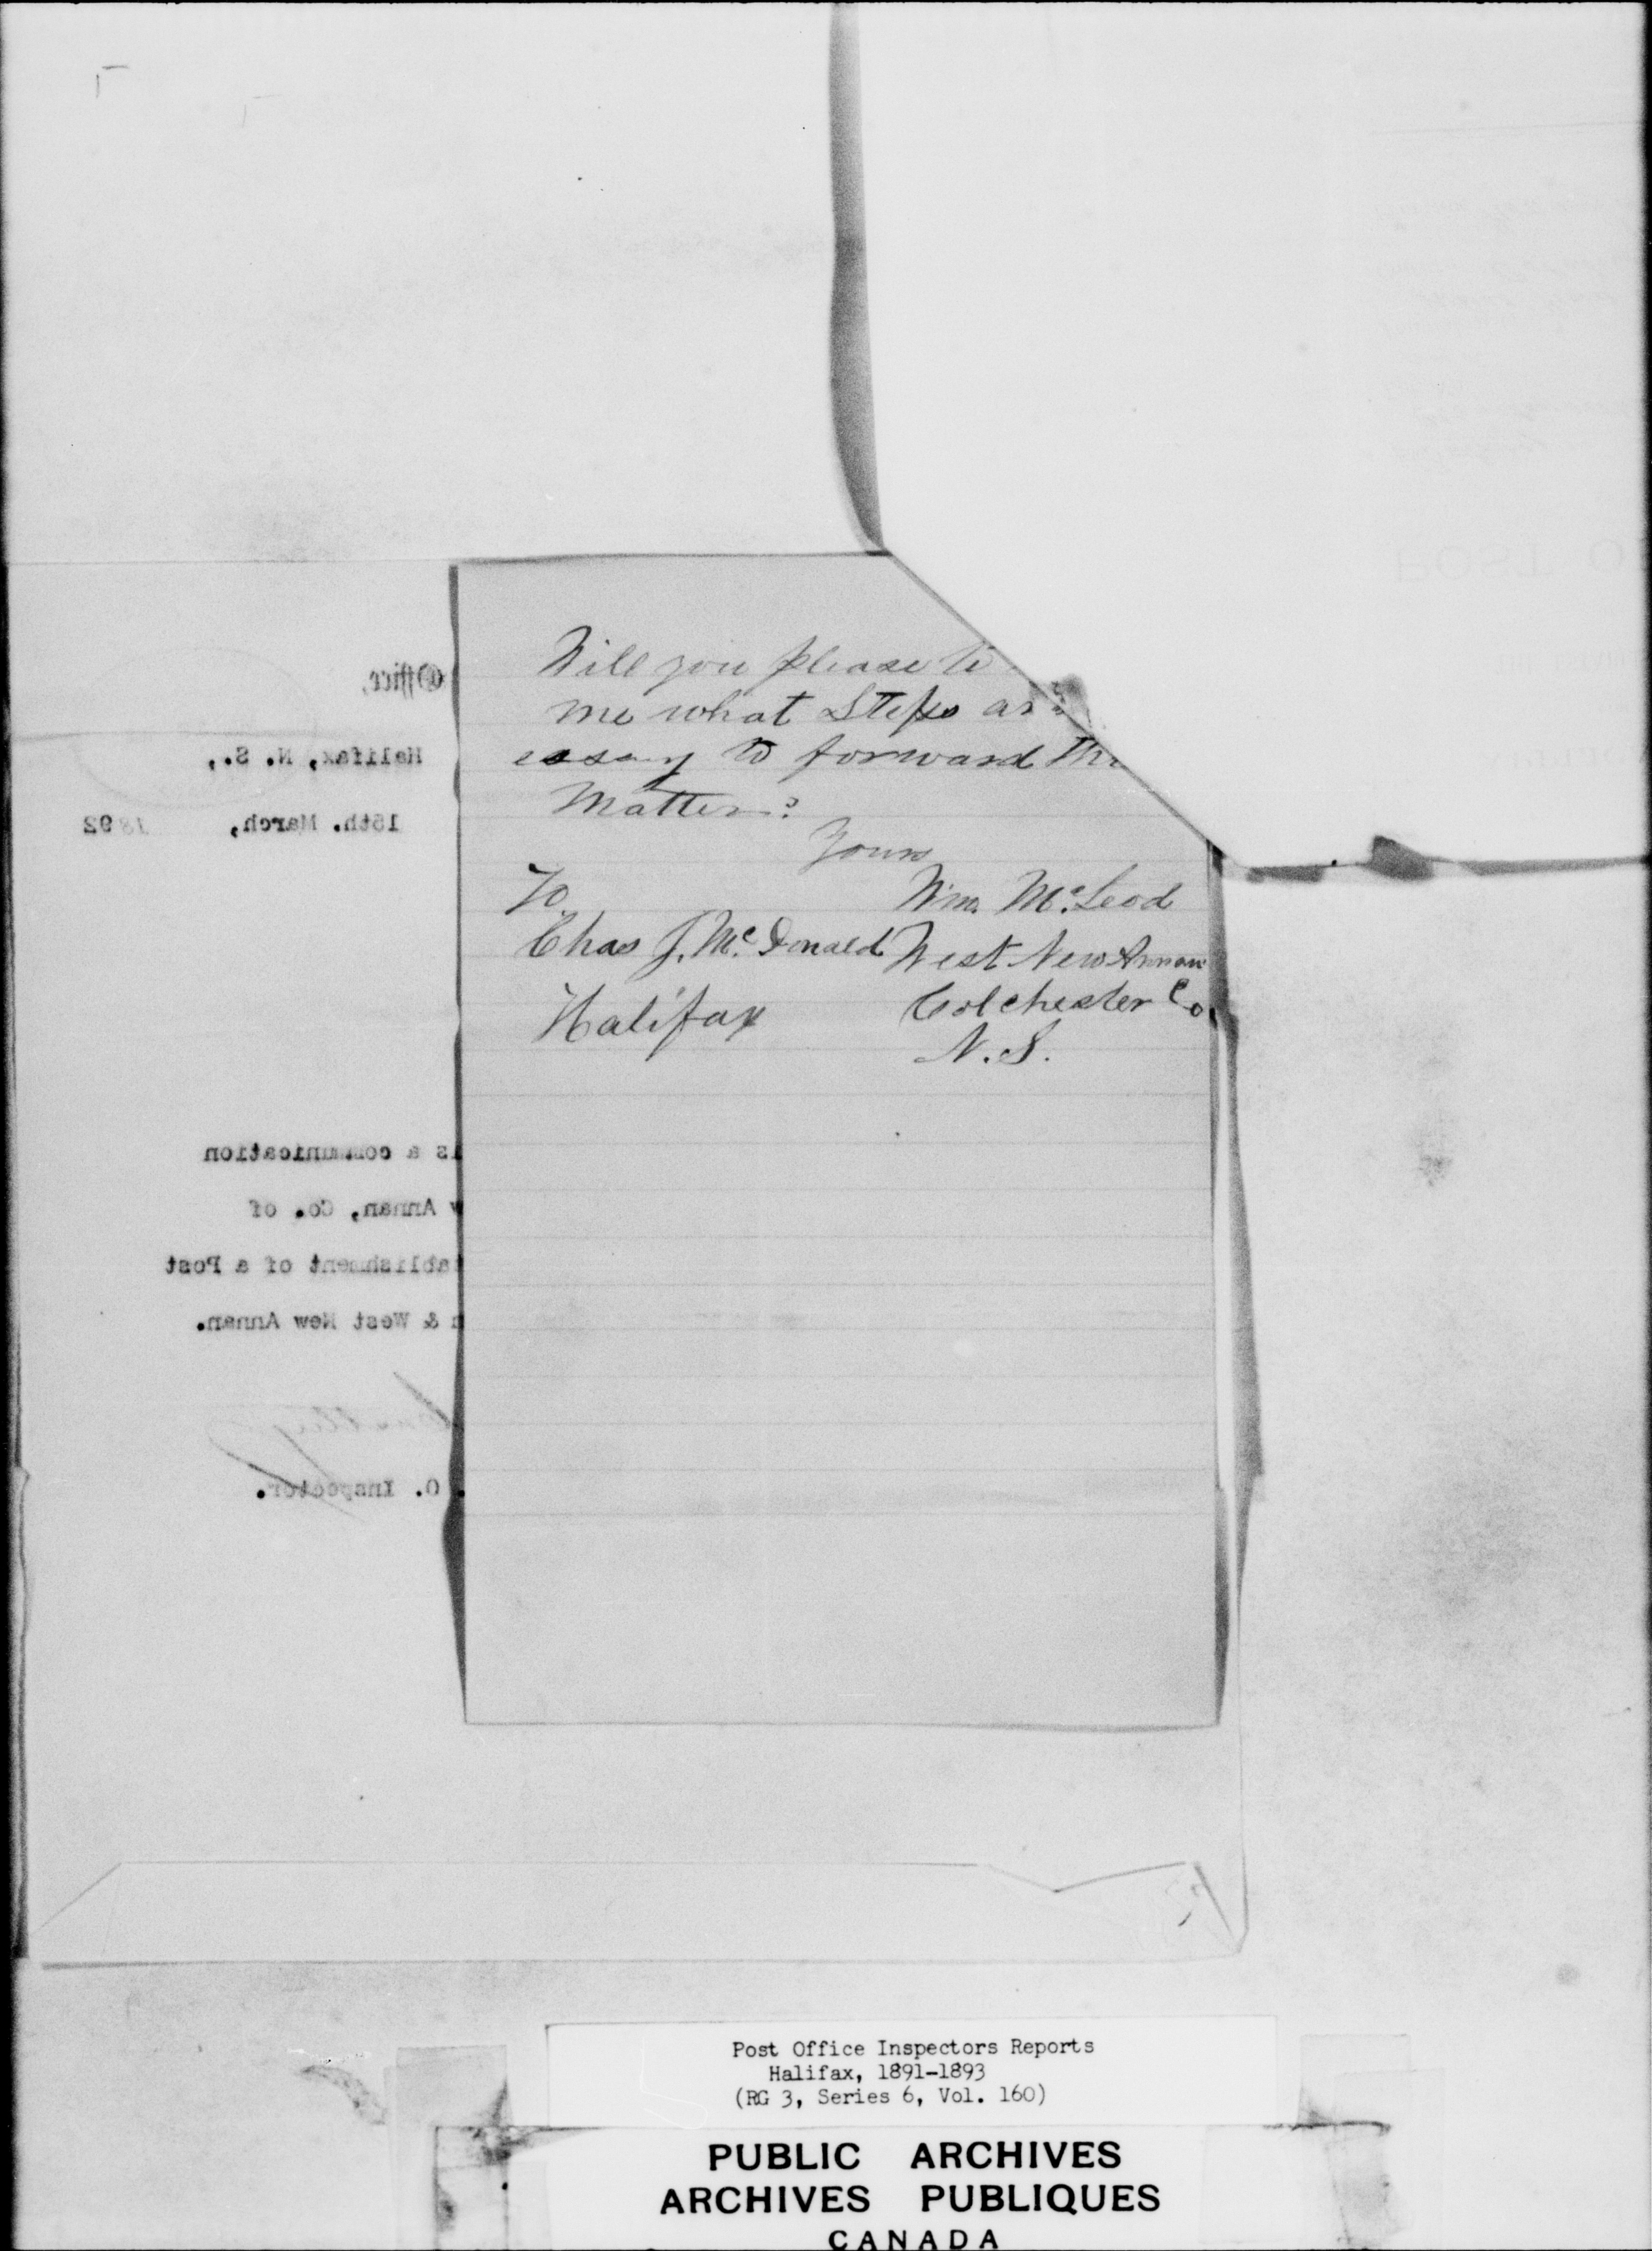 Will you please te
me what Steps ar
essary to forward the
Matter?
Yours
To Wm. McLeod
Chas J. McDonald West New Annan
Halifax Colchester Co
N. S.
Office,
Halifax, N. S.,
15th. March, 1892
is a communication
w Annan, Co. of
tablishment of a Post
n & West New Annan.
. O. Inspector.
POST O
Post Office Inspectors Reports
Halifax, 1891-1893
(RG 3, Series 6, Vol. 160)
PUBLIC ARCHIVES
ARCHIVES PUBLIQUES
CANADA